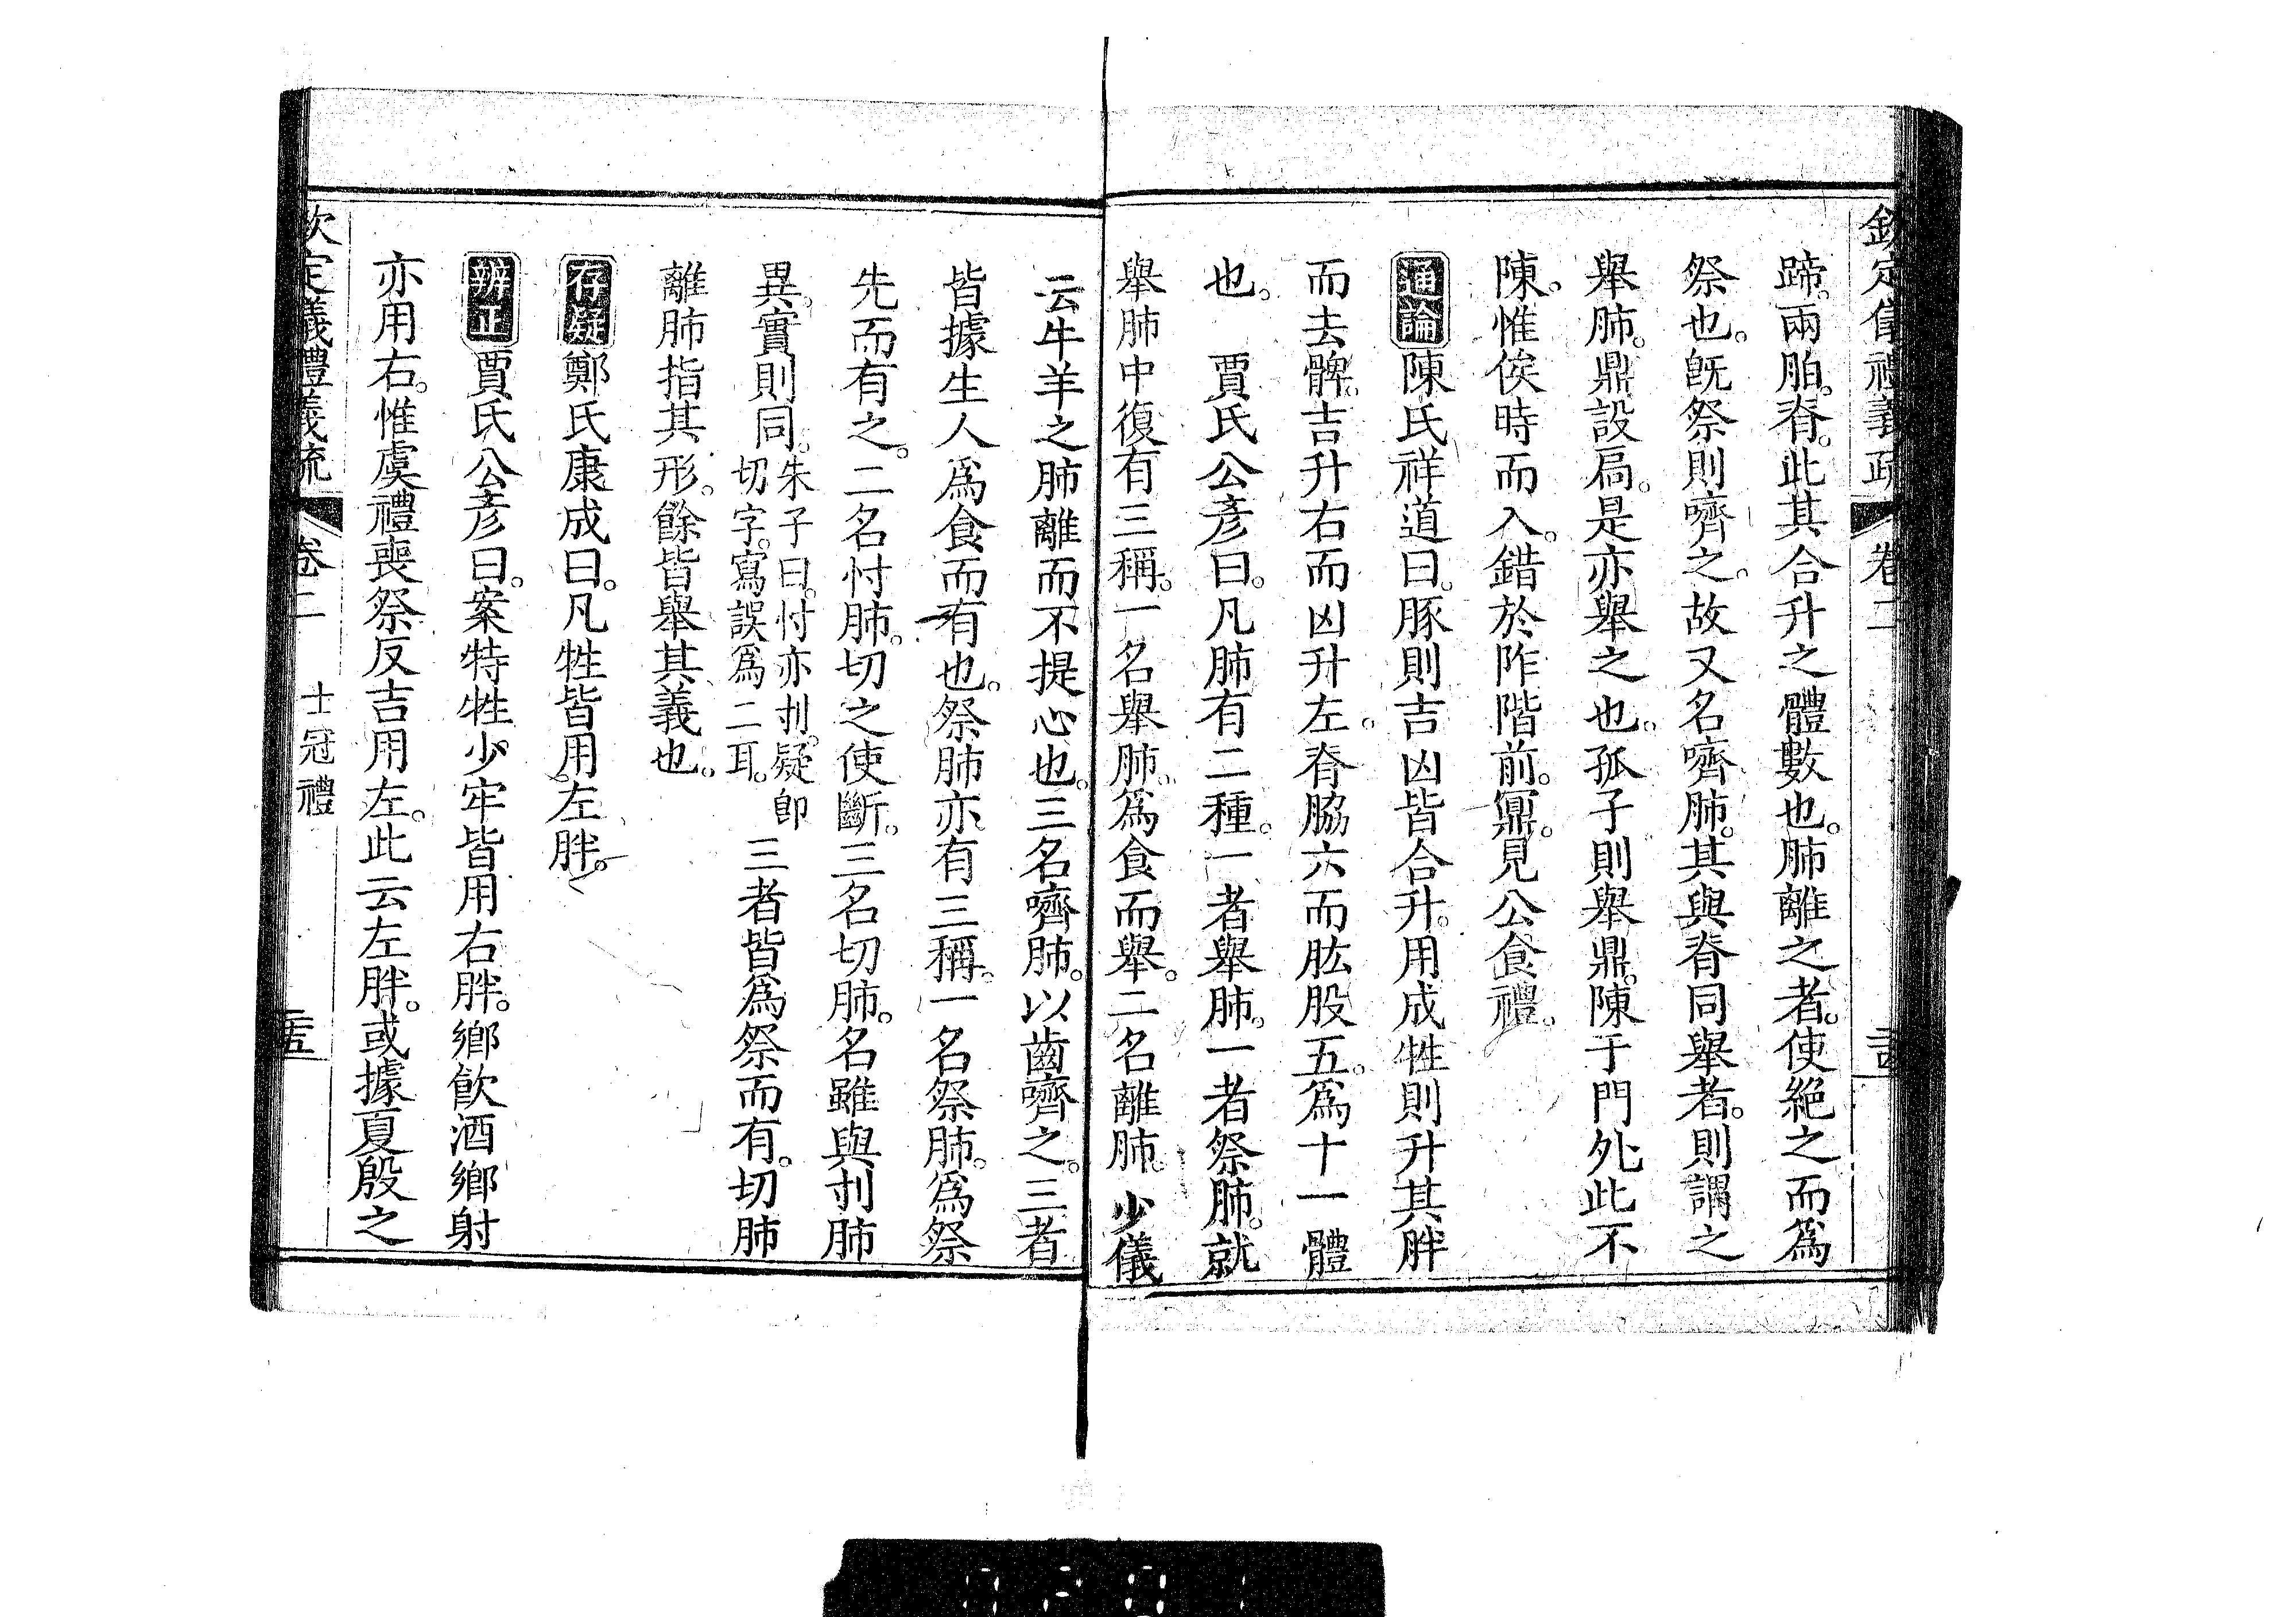 欽定儀禮義疏 卷二 二十四
蹄。兩胉。脊。此其合升之體數也。肺離之者。使絕之而爲
祭也。旣祭則嚌之。故又名嚌肺。其與脊同舉者。則謂之
舉肺。鼎設扃。是亦舉之也。孤子則舉鼎。陳于門外。此不
陳。惟俟時而入。錯於阼階前。鼏。見公食禮。
通論 陳氏祥道曰。豚則吉凶皆合升。用成牲則升其胖
而去髀。吉升右而凶升左。脊脇六而肱股五。爲十一體
也。 賈氏公彥曰。凡肺有二種。一者舉肺。一者祭肺。就
舉肺中復有三稱。一名舉肺。爲食而舉。二名離肺。少儀
云牛羊之肺離而不提心也。三名嚌肺。以齒嚌之。三者
皆據生人爲食而有也。祭肺亦有三稱。一名祭肺。爲祭
先而有之。二名忖肺。切之使斷。三名切肺。名雖與刌肺
異。實則同。
朱子曰。忖亦刌。疑卽
切字。寫誤爲二耳。
三者皆爲祭而有。切肺
離肺指其形。餘皆舉其義也。
存疑 鄭氏康成曰。凡牲皆用左胖。
辨正 賈氏公彥曰。案特牲少牢皆用右胖。鄉飮酒鄉射
亦用右。惟虞禮喪祭反吉用左。此云左胖。或據夏殷之
欽定儀禮義疏 卷二 士冠禮 二十五